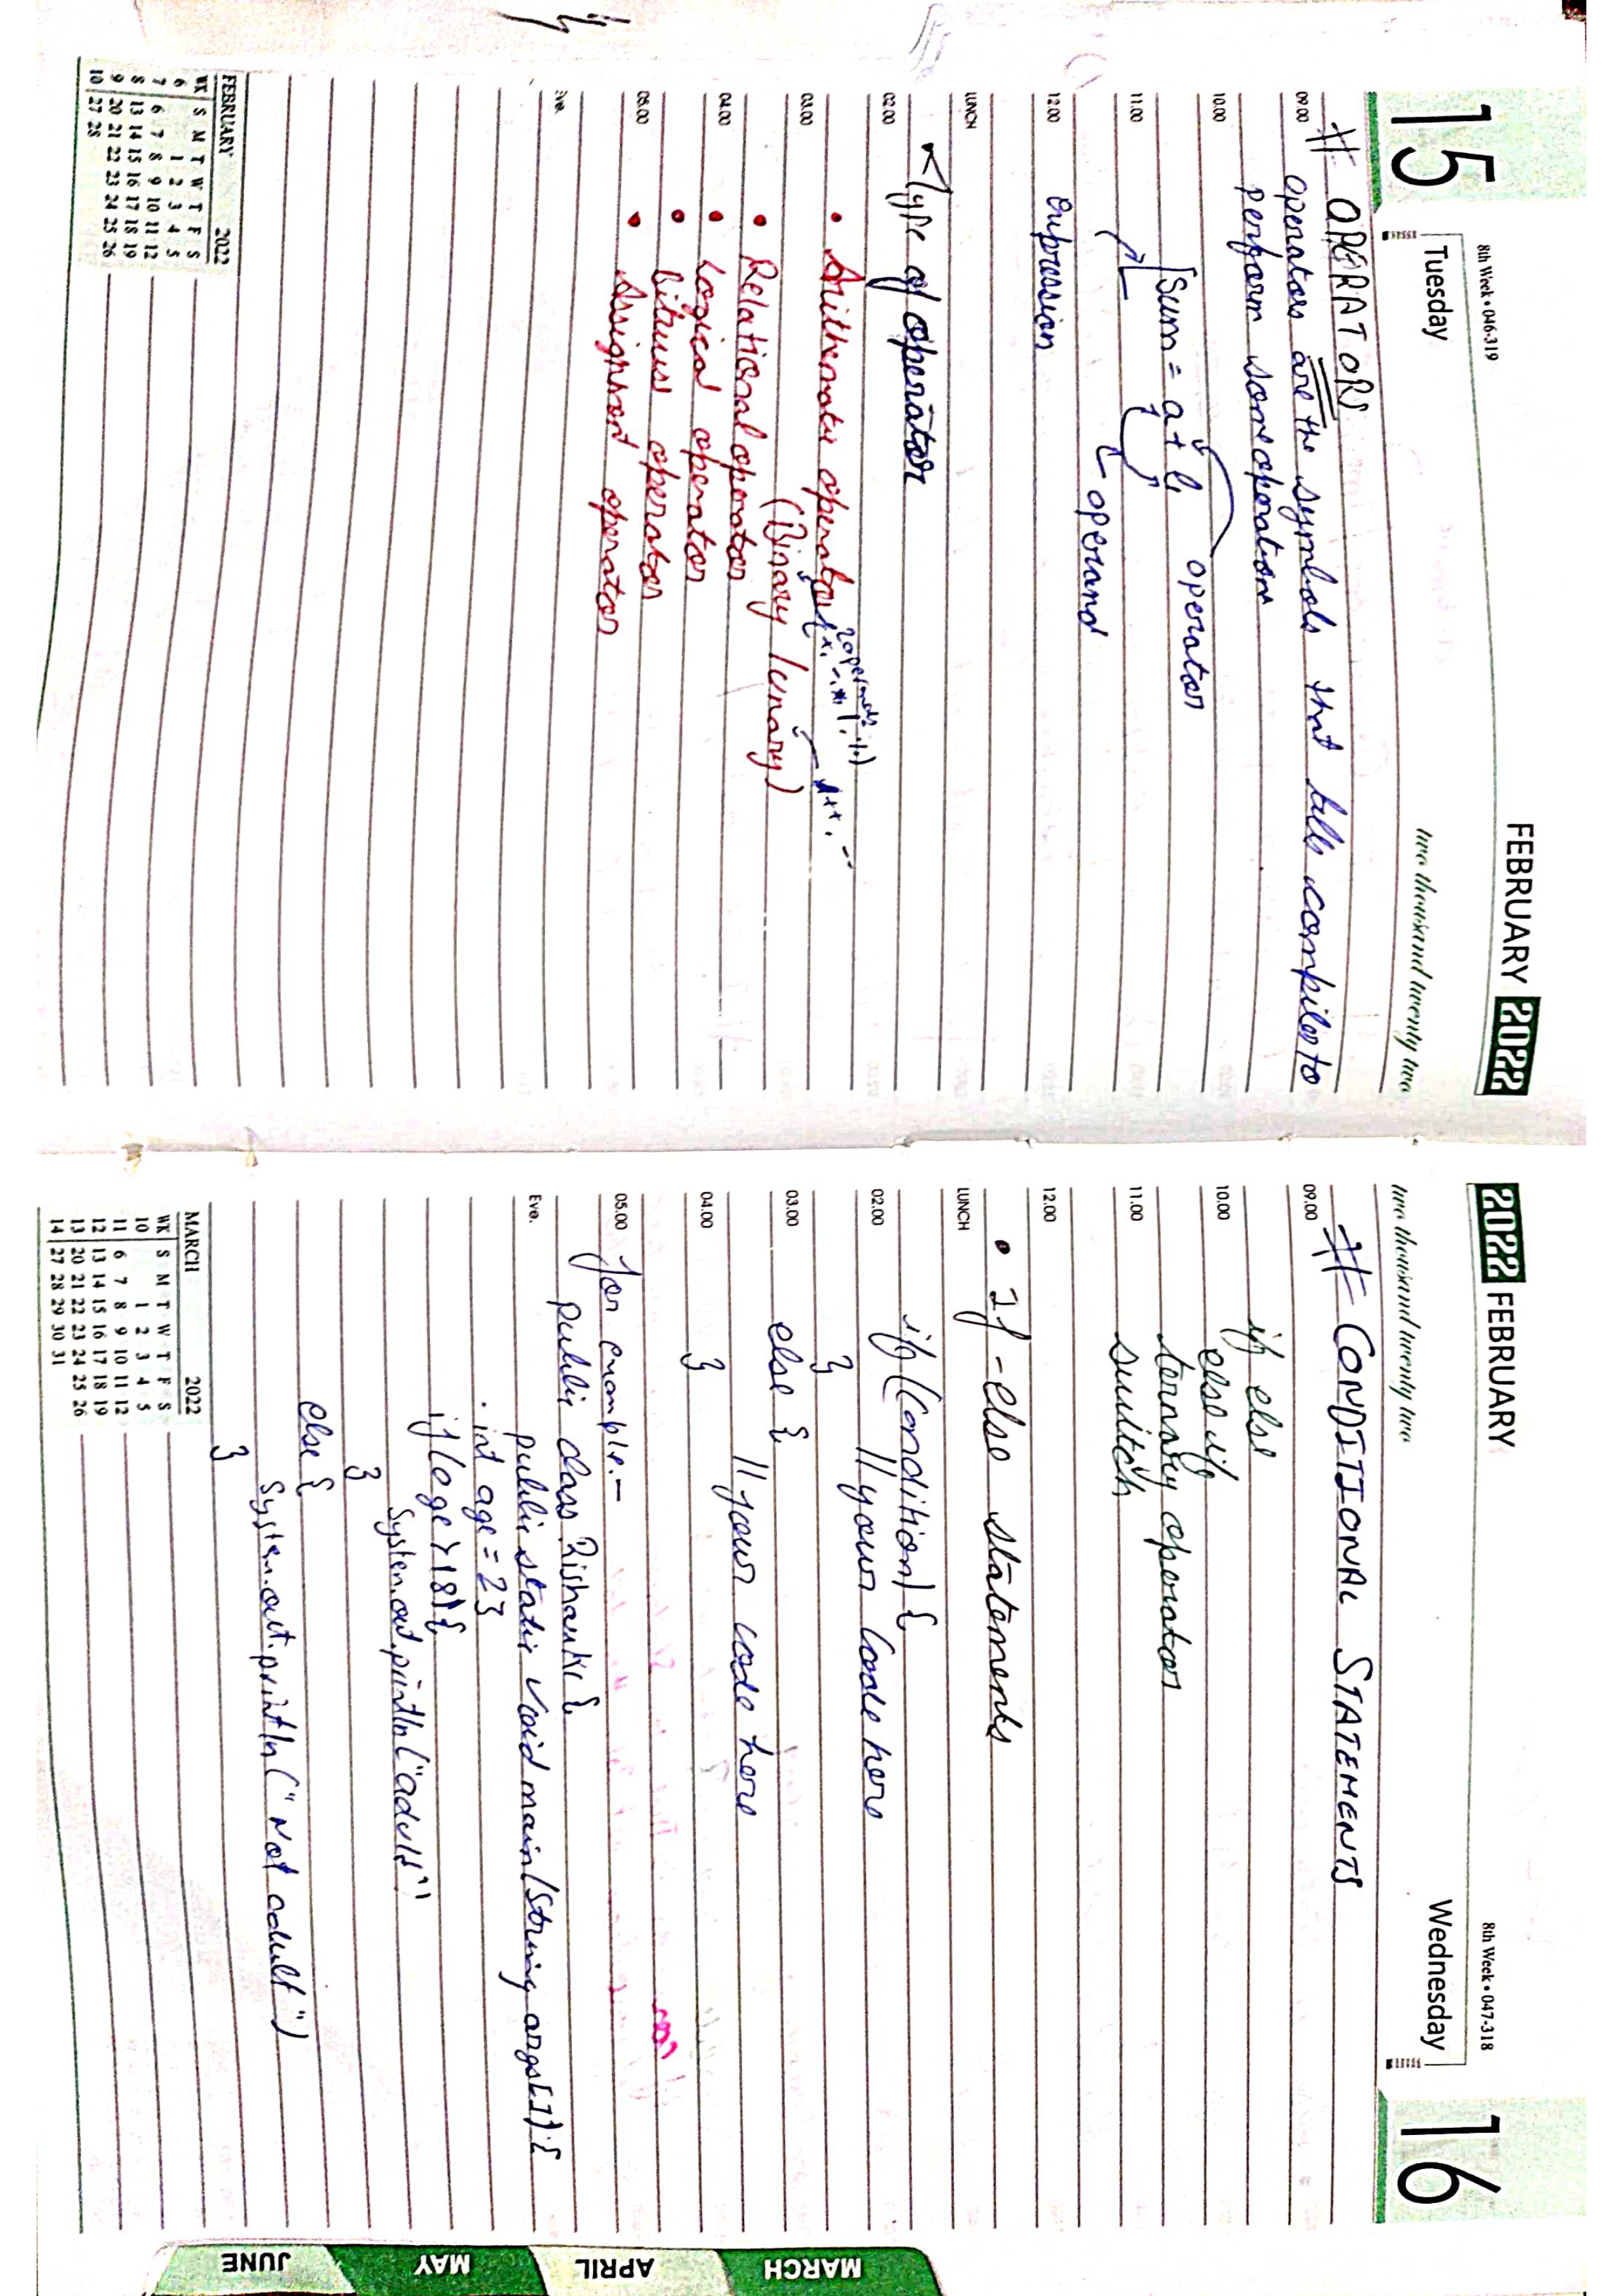 15
8th Week • 046-319
FEBRUARY 2022
Tuesday
two thousand twenty two
# OPERATORS
09.00
operators are the symbols that tells compiler to
perform some operations
10.00
operator
Sum = a + b
11.00
operand
12.00
expression
LUNCH
Type of operator
02.00
2 operands
• Arithematic operator (+, -, *, /, %) A++, --
03.00
(Binary / unary)
• Relational operator
04.00
• Logical operator
• Bitwise operator
05.00
• Assignment operator
Eve.
FEBRUARY 2022
WK S M T W T F S
6 1 2 3 4 5
7 6 7 8 9 10 11 12
8 13 14 15 16 17 18 19
9 20 21 22 23 24 25 26
10 27 28
2022 FEBRUARY
8th Week • 047-318
16
Wednesday
two thousand twenty two
# CONDITIONAL STATEMENTS
09.00
if else
10.00
else if
ternary operator
11.00
switch
12.00
• If - else statements
LUNCH
if (Condition) {
02.00
// your Code here
}
03.00
else {
// your code here
04.00
}
05.00
for example:-
public class Rishank {
Eve.
public static void main (String args[]) {
int age = 23
if (age > 18) {
System.out.println ("adult"
}
else {
System.out.println (" Not adult ")
}
MARCH 2022
WK S M T W T F S
10 1 2 3 4 5
11 6 7 8 9 10 11 12
12 13 14 15 16 17 18 19
13 20 21 22 23 24 25 26
14 27 28 29 30 31
MARCH
APRIL
MAY
JUNE